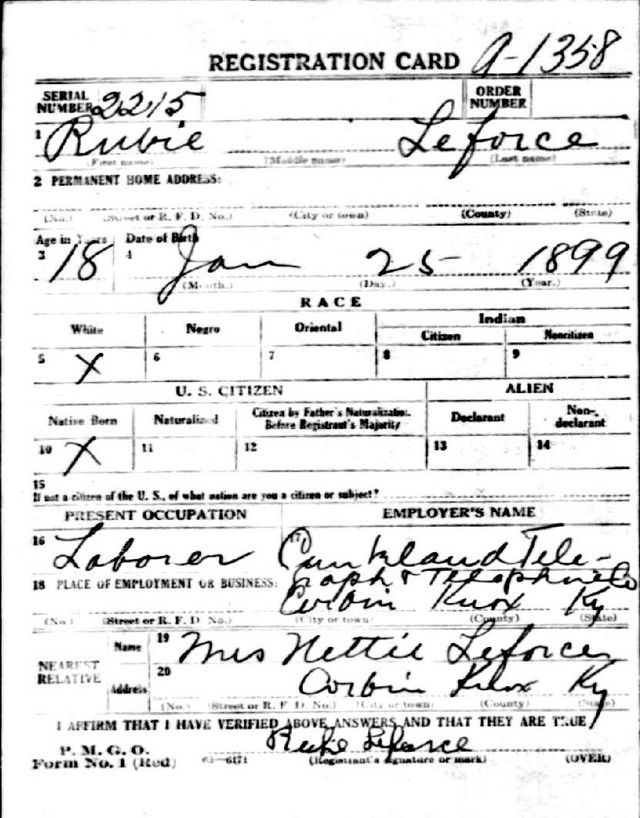 REGISTRATION CARD A-1358
SERIAL NUMBER 2215 ORDER NUMBER
1 Rubie Leforce
(First name) (Middle name) (Last name)
2 PERMANENT HOME ADDRESS:
(No.) (Street or R. F. D. No.) (City or town) (County) (State)
Age in Years Date of Birth
3 18 4 Jan 25 1899
(Month.) (Day.) (Year.)
RACE
White Negro Oriental Indian
Citizen Noncitizen
5 X 6 7 8 9
U. S. CITIZEN ALIEN
Native Born Naturalized Citizen by Father's Naturalization Before Registrant's Majority Declarant Non-declarant
10 X 11 12 13 14
15
If not a citizen of the U. S., of what nation are you a citizen or subject?
PRESENT OCCUPATION EMPLOYER'S NAME
16 Laborer 17 Tele-
graph & Telephone Co
18 PLACE OF EMPLOYMENT OR BUSINESS:
Corbin Knox Ky
(No.) (Street or R. F. D. No.) (City or town) (County) (State)
NEAREST RELATIVE
Name 19 Mrs Nettie Leforce
Address 20 Corbin Knox Ky
(No.) (Street or R. F. D. No.) (City or town) (County) (State)
I AFFIRM THAT I HAVE VERIFIED ABOVE ANSWERS AND THAT THEY ARE TRUE
P. M. G. O.
Form No. 1 (Red) 03-6171 Leforce
(Registrant's signature or mark) (OVER)